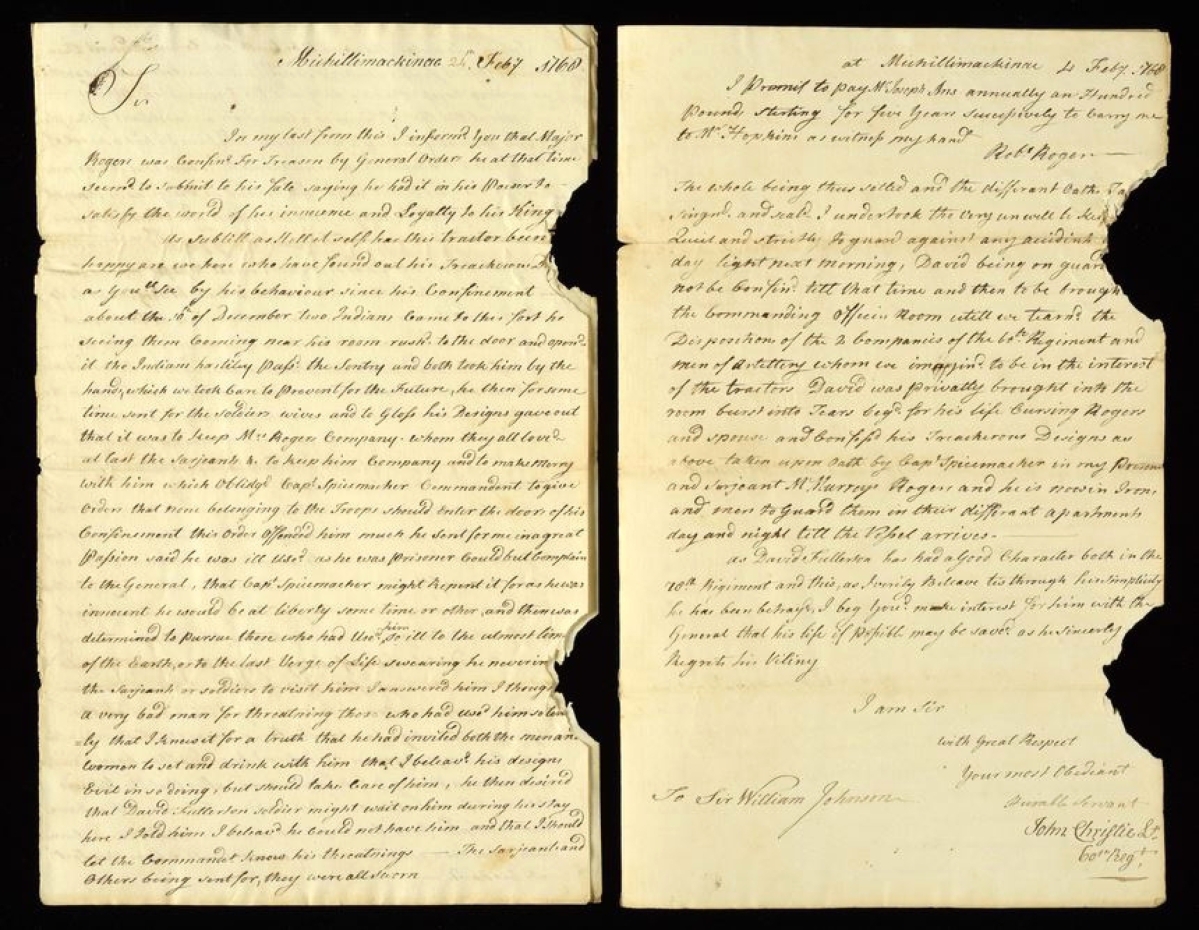 Michillimackinac 24th Feby 1768
Sir
In my last from this I inform'd You that Major
Rogers was Confin'd For Treason by General Orders he at that time
seem'd to submit to his fate saying he had it in his Power to
satisfy the world of his innocence and Loyalty to his King
As Subtill as Hell it self has this tractor been
happy are we here who have found out his Treacherous
as You'll See by his behaviour since his Confinement
about the of December two Indians Came to this fort he
seeing them Coming near his room rush'd to the door and open'd
it the Indians hastiley Pass'd the Sentry and both took him by the
hand, which we took Care to Prevent for the Future, he then for some
time sent for the soldiers wives and to Gloss his Designs gave out
that it was to keep Mrs Rogers Company whom they all love'd
at last the Sarjeants &c to keep him Company and to make Merry
with him which Oblidg'd Capt Spicemacker Commandent to give
Orders that none belonging to the Troops should enter the doors of his
Confinsement this Order Offended him much he sent for me in a great
Passion said he was ill Use'd as he was Prisoner Could but Complain
to the General, that Capt Spicemacker might Repent it for as he was
innocent he would be at liberty some time or other, and then was
determined to Pursue those who had Use'd him so ill to the utmost lim
of the Earth, or to the last Verge of Life swearing he never in
the Sarjeants or soldiers to visit him I answered him I though
a very bad man for threatning thos who had use'd him so
ly that I knew it for a truth that he had invited both the men and
women to set and drink with him that I beleav'd his designs
Evil in so doing, but should take Care of him, he then desired
that David Fullerton soldier might wait on him during his stay
here I told him I beleavd he Could not have him and that I should
let the Commandet know his threatnings — The Sarjeants and
Others being sent for, they were all sworn
at Michillimackinac 4 Feby 1768
I Promis to pay Mr Joseph Ans annually an Hundred
Pound sterling for five Years Successively to Carry me
to Mr Hopkins as witness my hand
Robt Rogers —
The whole being thus setled and the differant Oaths Ta
Singn'd and seal'd I undertook tho very unwell to
Quiet and strictly to guard against any accident
day light next morning, David being on guard
not be Confin'd till that time and then to be brough
the Commanding Officers Room untill we learn'd the
Dispositions of the 2 Companies of the 60th Regiment and
men of Artillery whom we immagin'd to be in the interest
of the tractors David was privatly brought into the
room burst into Tears beg'd for his life Cursing Rogers
and spouse and Confess'd his Treacherous Designs as
above taken upon Oath by Capt Spicemacker in my Presence
and Sarjeant McKurrays Rogers and he is now in Irons
and men to Guard them in their different apartments
day and night till the Vessel arrives.
as David Fullerton has had a Good Character both in the
Regiment and this, as I verily Beleave tis through his simplicity
he has been betray'd, I beg You'd make interest for him with the
General that his life if possible may be save'd as he sincerely
Regrits his Viliny
I am Sir
with Great Respect
Your most Obediant
Humble Servant
To Sir William Johnson
John Christie Lt.
60th Regt.